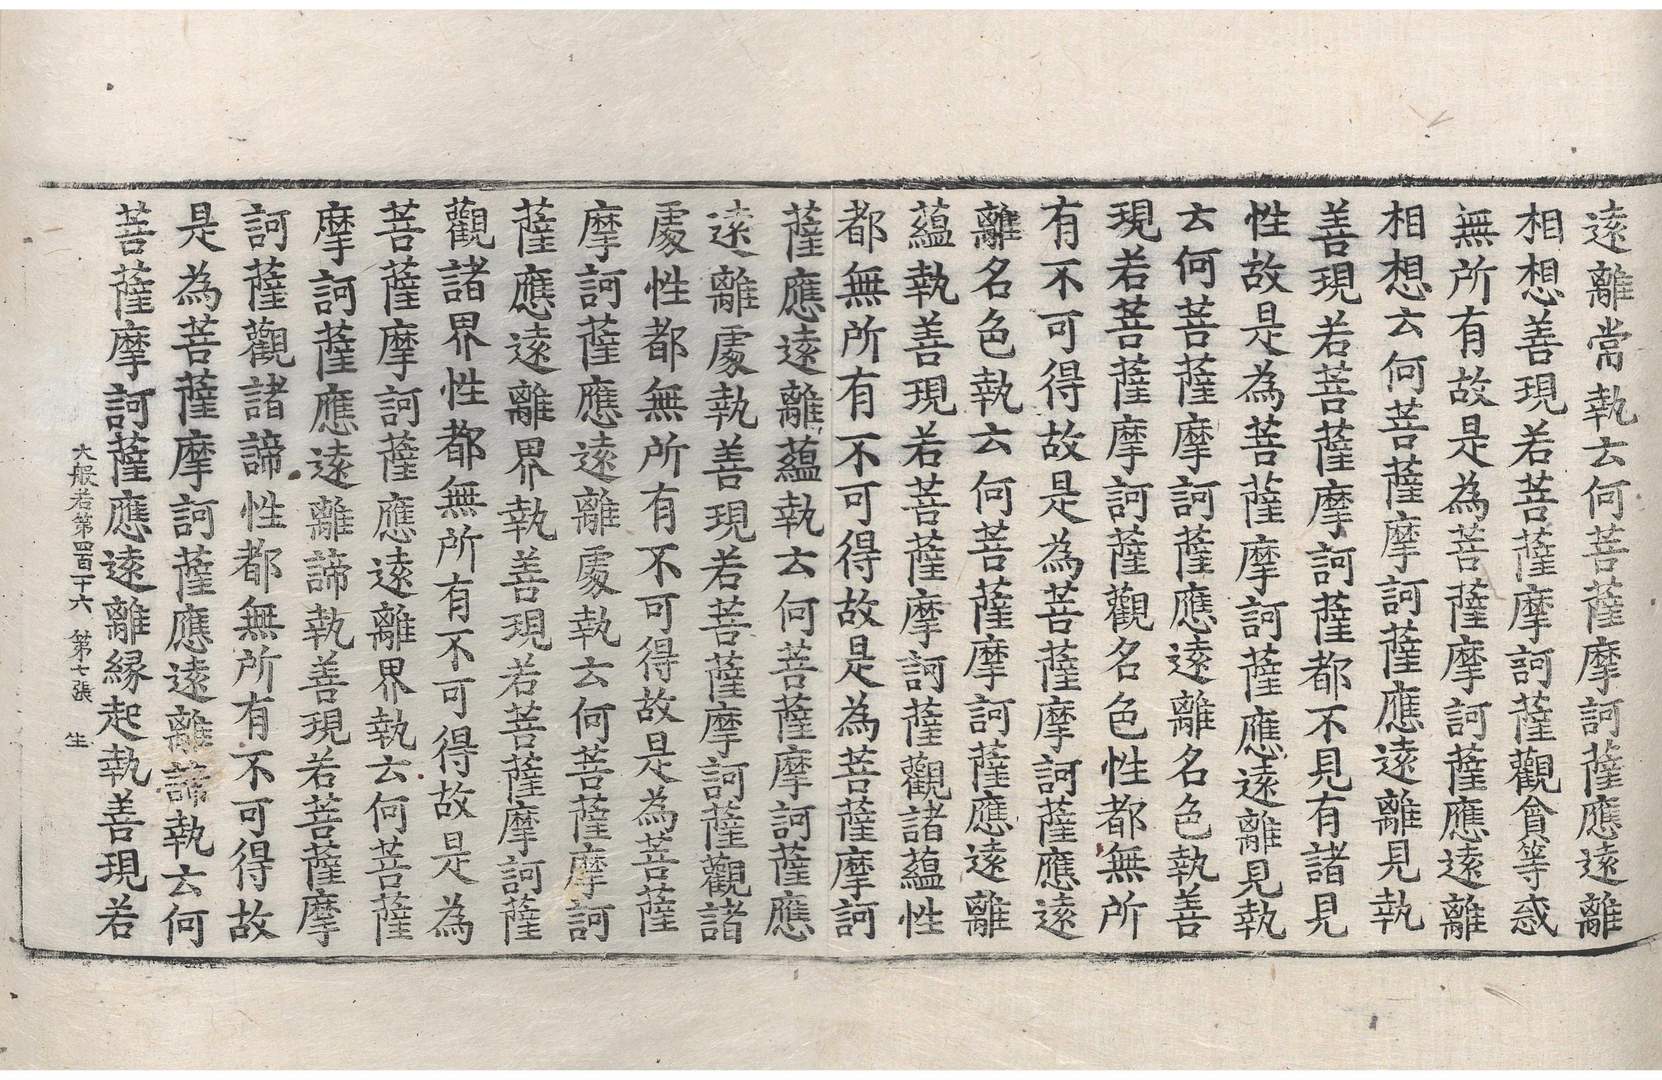 遠離常執云何菩薩摩訶薩應遠離
相想善現若菩薩摩訶薩觀貪等惑
無所有故是為菩薩摩訶薩應遠離
相想云何菩薩摩訶薩應遠離見執
善現若菩薩摩訶薩都不見有諸見
性故是為菩薩摩訶薩應遠離見執
云何菩薩摩訶薩應遠離名色執善
現若菩薩摩訶薩觀名色性都無所
有不可得故是為菩薩摩訶薩應遠
離名色執云何菩薩摩訶薩應遠離
蘊執善現若菩薩摩訶薩觀諸蘊性
都無所有不可得故是為菩薩摩訶
薩應遠離蘊執云何菩薩摩訶薩應
遠離處執善現若菩薩摩訶薩觀諸
處性都無所有不可得故是為菩薩
摩訶薩應遠離處執云何菩薩摩訶
薩應遠離界執善現若菩薩摩訶薩
觀諸界性都無所有不可得故是為
菩薩摩訶薩應遠離界執云何菩薩
摩訶薩應遠離諦執善現若菩薩摩
訶薩觀諸諦性都無所有不可得故
是為菩薩摩訶薩應遠離諦執云何
菩薩摩訶薩應遠離縁起執善現若
大般若第四百十六 第七張 生